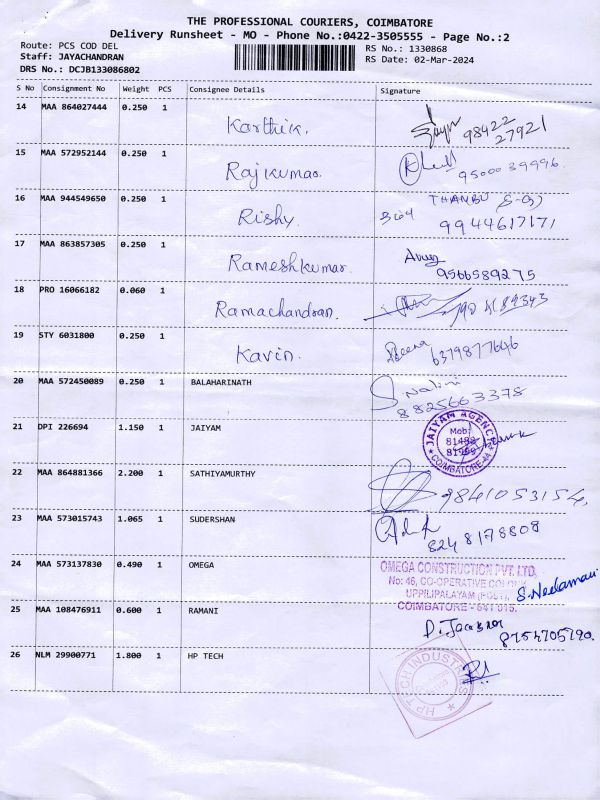 THE PROFESSIONAL COURIERS, COIMBATORE
Delivery Runsheet - MO - Phone No.:0422-3505555 - Page No.:2
Route: PCS COD DEL
RS No.: 1330868
Staff: JAYACHANDRAN
RS Date: 02-Mar-2024
DRS No.: DCJB133086802
S No Consignment No Weight PCS Consignee Details Signature
14 MAA 864027444 0.250 1 Karthik. 98422
27921
15 MAA 572952144 0.250 1 Rajkumar. 9500039996.
16 MAA 944549650 0.250 1 Rishy THANBU
9944617171
17 MAA 863857305 0.250 1 Rameshkumar.
9566589275
18 PRO 16066182 0.060 1 Ramachandran.
19 STY 6031800 0.250 1 Kavin. 6379877646
20 MAA 572450089 0.250 1 BALAHARINATH S. Nalini
8825663378
21 DPI 226694 1.150 1 JAIYAM JAIYAM AGENCI
Mob:
COIMBATORE
22 MAA 864881366 2.200 1 SATHIYAMURTHY 9841053154,
23 MAA 573015743 1.065 1 SUDERSHAN
8248178808
24 MAA 573137830 0.490 1 OMEGA OMEGA CONSTRUCTION PVT. LTD.
No: 46, CO-OPERATIVE COLONY,
UPPILIPALAYAM (POST),
COIMBATORE - 641 015.
25 MAA 108476911 0.600 1 RAMANI
26 NLM 29900771 1.800 1 HP TECH HP TECH INDUSTRIES